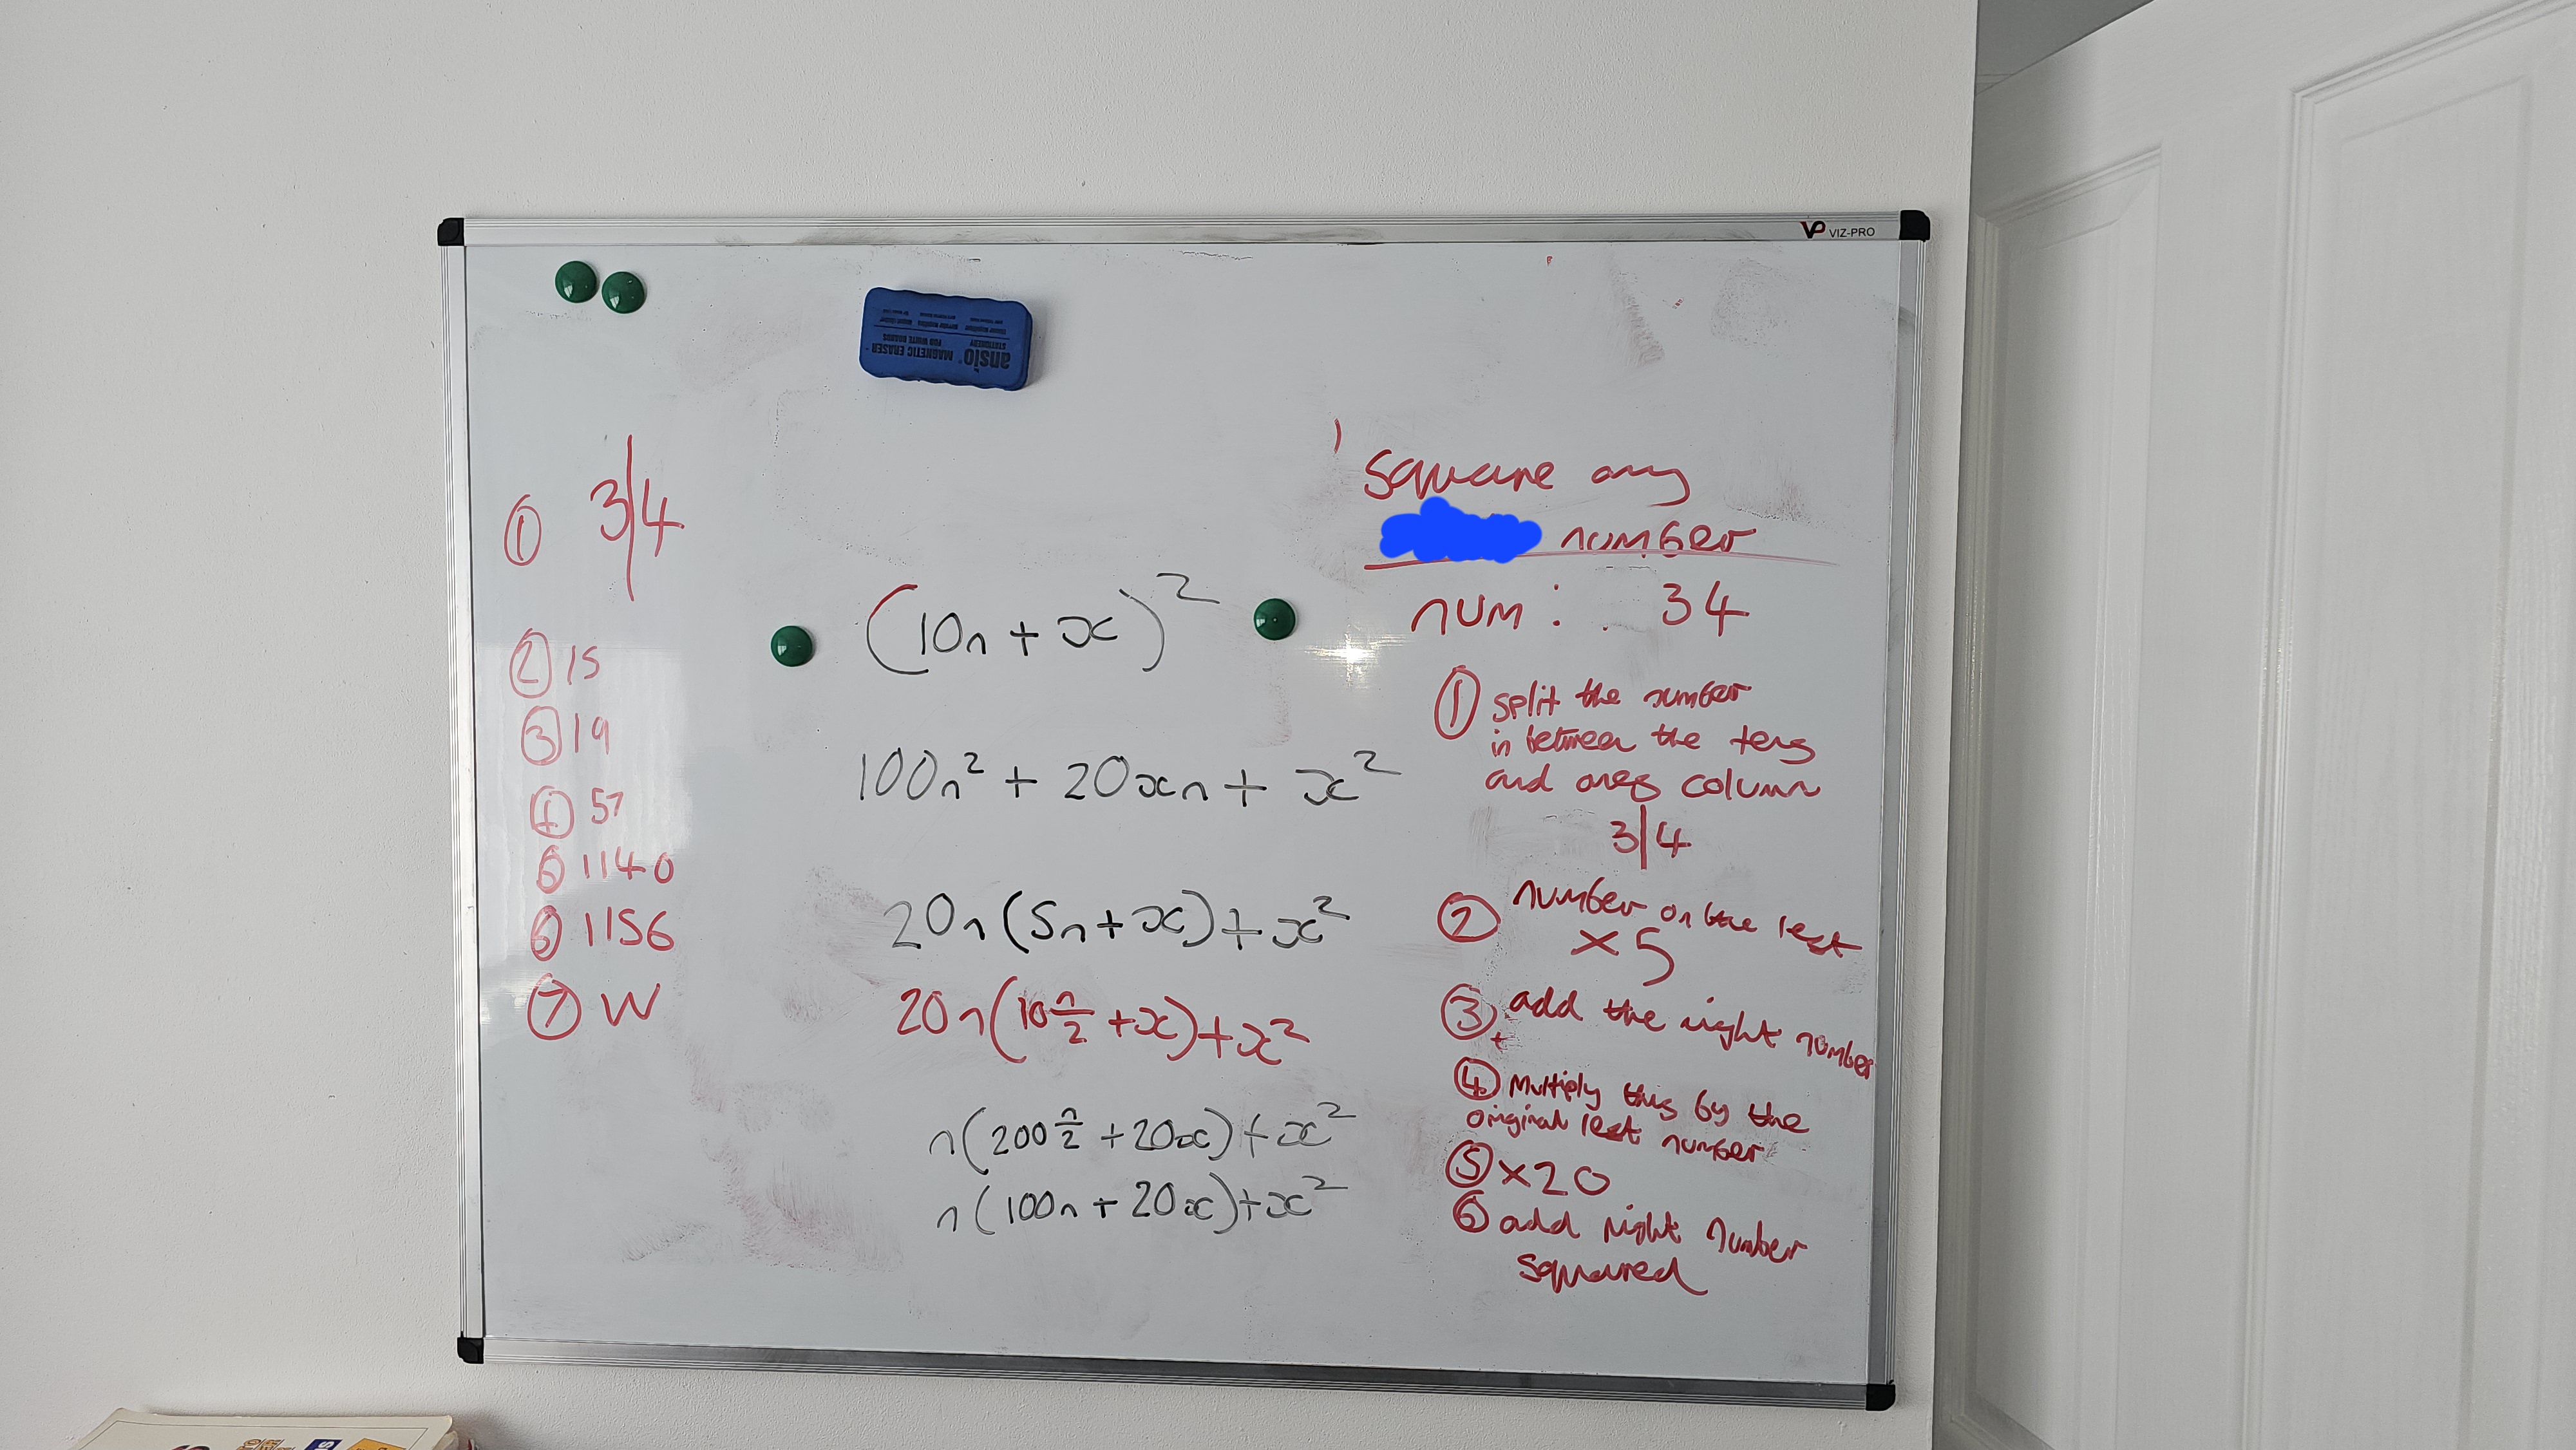 VP VIZ-PRO
ansio
STATIONERY
MAGNETIC ERASER
FOR WHITE BOARDS
① 3|4
② 15
③ 19
④ 57
⑤ 1140
⑥ 1156
⑦ W
(10n + x)²
100n² + 20xn + x²
20n(5n + x) + x²
20n(10 n/2 + x) + x²
n(200 n/2 + 20x) + x²
n(100n + 20x) + x²
Square any
number
num : 34
① split the number
in between the tens
and ones column
3|4
② number on the left
× 5
③ add the right number
④ Multiply this by the
original left number
⑤ × 20
⑥ add right number
squared